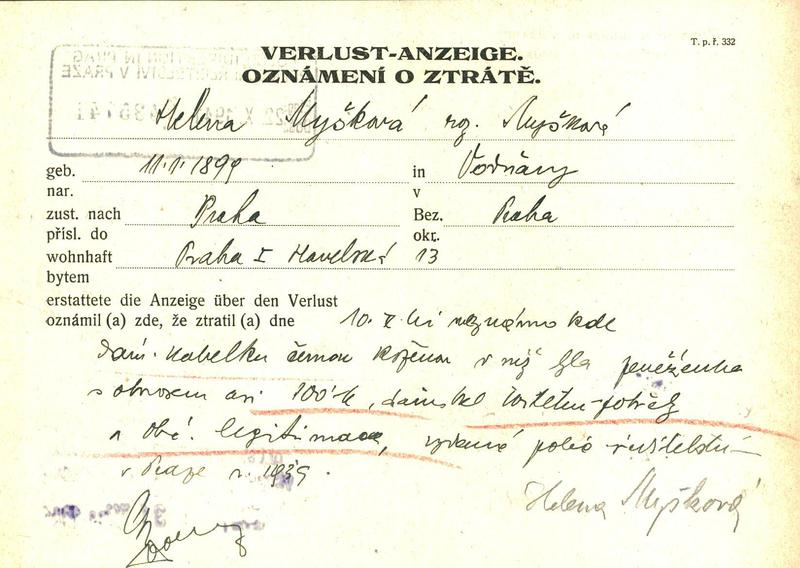 T. p. ř. 332
VERLUST-ANZEIGE.
OZNÁMENÍ O ZTRÁTĚ.
Helena Myšková roz. Myšková
geb. 11.1.1899 in Vodňany
nar. v
zust. nach Praha Bez. Praha
přísl. do okr.
wohnhaft Praha I Havelská 13
bytem
erstattete die Anzeige über den Verlust
oznámil (a) zde, že ztratil (a) dne 10. neznámo kde
dám. kabelku černou koženou v níž byla peněženka
s obnosem asi 100 K, dámské toiletní potřeby
a obč. legitimace, vydaná polic. ředitelstv
v Praze r. 1939.
Helena Myšková